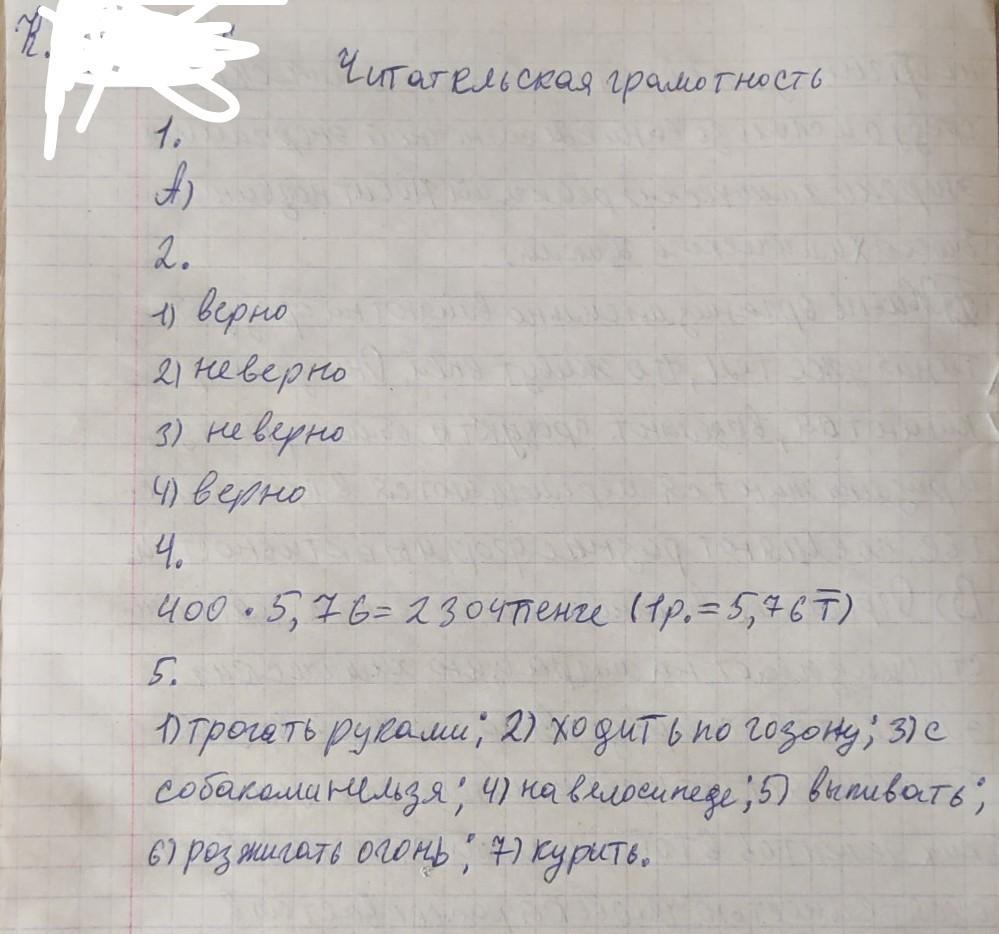 К.
Читательская грамотность
1.
А)
2.
1) верно
2) неверно
3) неверно
4) верно
4.
400 · 5,76 = 2304 тенге (1р. = 5,76 ₸)
5.
1) трогать руками; 2) ходить по гозону; 3) с
собаками нельзя; 4) на велосипеде; 5) выпивать;
6) розжигать огонь; 7) курить.